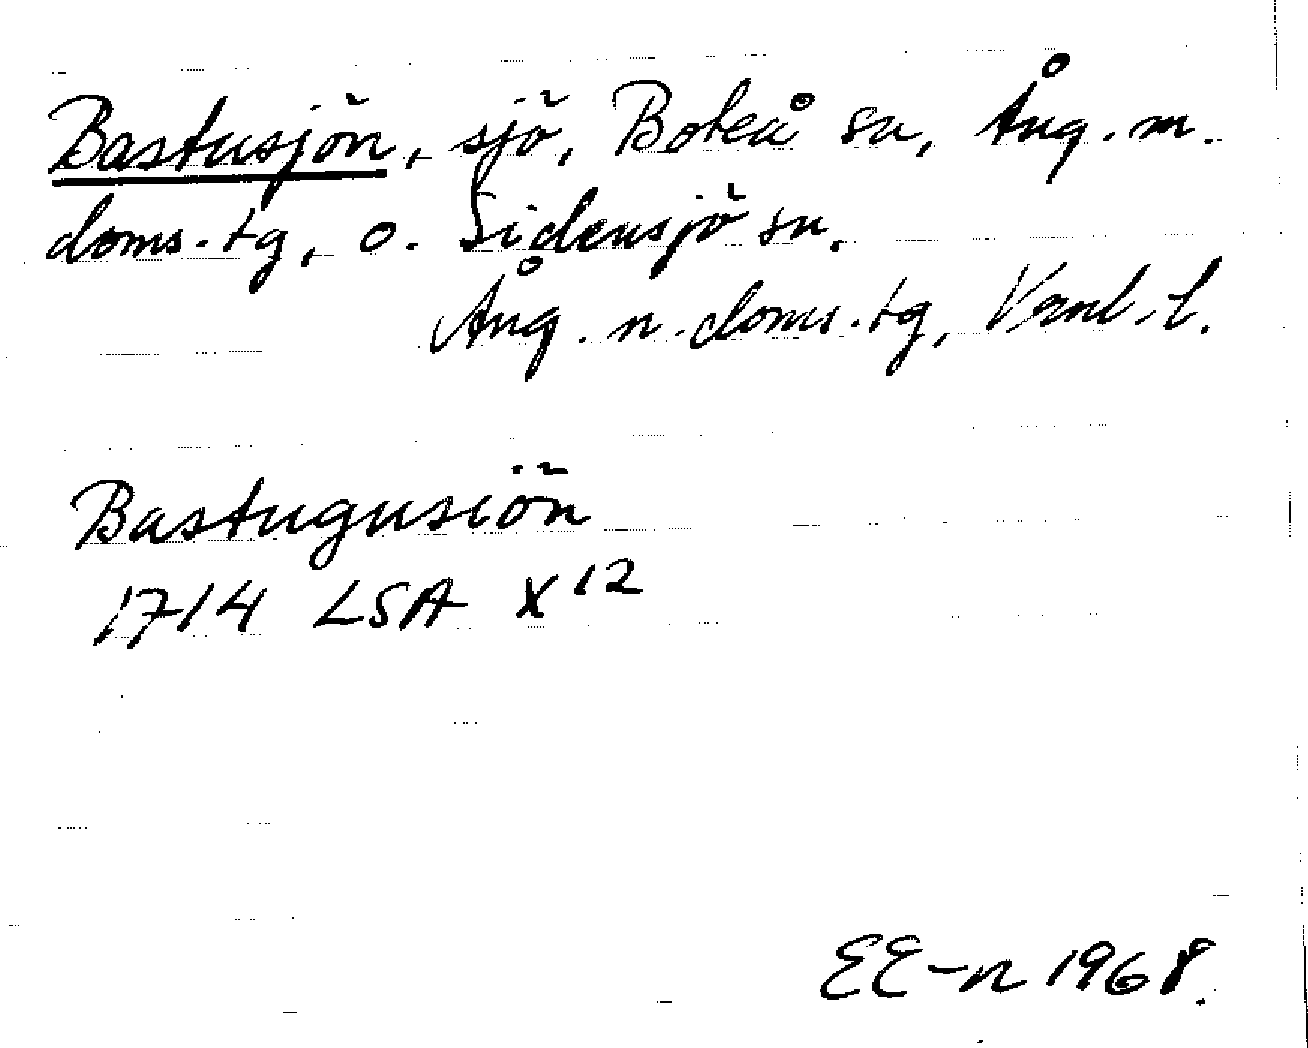 Bastusjön, sjö, Boteå sn, Ång. m.
doms.tg, o. Sidensjö sn.
Ång. n. doms.tg, Vrnl.l.
Bastugusiön
1714 LSA X12
EE-n 1968.